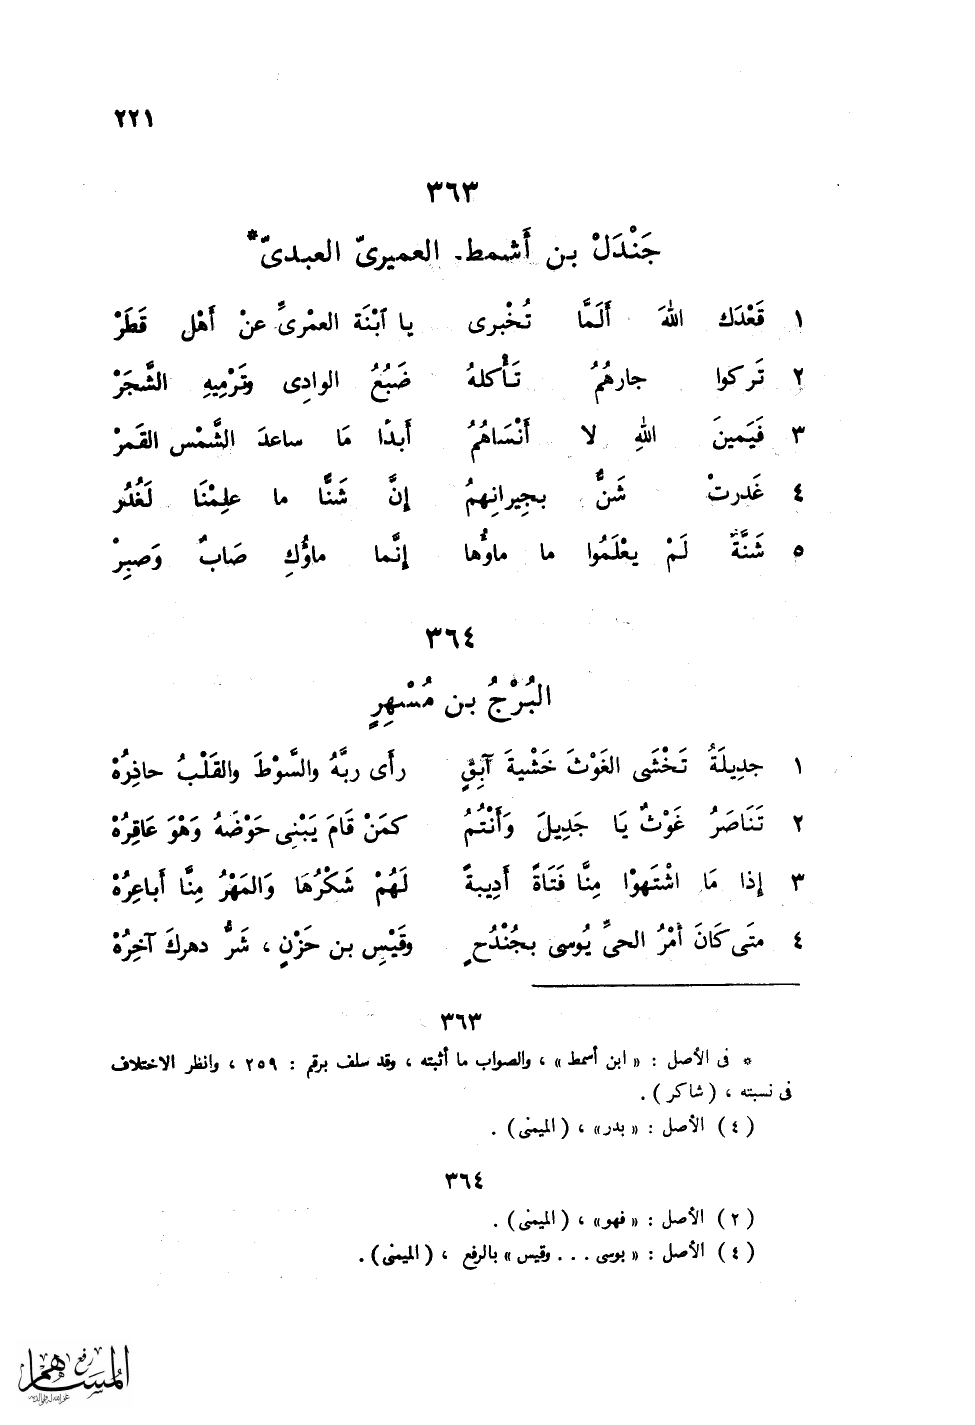 ٢٢١
٣٦٣
جَنْدَلْ بن أَشمط. العميرىّ العبدىّ*
١ قَعْدَك اللهَ أَلَمَّا تُخْبرى يا ٱبْنَة العمْرىِّ عنْ أَهْل قَطَرْ
٢ تَركوا جارهُمُ تَأْكلهُ ضَبُعُ الوادِى وتَرْمِيهِ الشَّجَرْ
٣ فَيَمينَ اللهِ لا أَنْسَاهُمُ أَبدًا مَا ساعدَ الشَّمْس القمرْ
٤ غَدرتْ شَنٌّ بجِيرانِهمُ إنَّ شَنًّا ما علِمْنَا لَغُدُر
٥ شَنَّةٌ لَمْ يعْلَمُوا ما ماوُها إنَّما ماوُكِ صَابٌ وَصبِرْ
٣٦٤
البُرْجُ بن مُسْهِرٍ
١ جدِيلَةُ تَخْشَى الغَوْثَ خَشْيةَ آبِقٍ رأى ربَّهُ والسَّوْطَ والقَلْبُ حاذِرُهْ
٢ تَنَاصَرُ غَوْثٌ يَا جَدِيلَ وَأَنْتُمُ كمَنْ قَامَ يَبْنِى حَوْضَهُ وَهْوَ عَاقِرُهْ
٣ إذا مَا اشْتَهوْا مِنَّا فَتَاةً أَدِيبةً لَهُمْ شَكْرُهَا وَالمَهْرُ مِنَّا أَباعِرُهْ
٤ متَى كَانَ أَمْرُ الحىِّ يُوسى بجُنْدُحٍ وقَيْسِ بن حَزْنٍ ، شَرُّ دهركَ آخِرُهْ
٣٦٣
* فى الأصل : « ابن أسمط » ، والصواب ما أثبته ، وقد سلف برقم : ٢٥٩ ، وانظر الاختلاف
فى نسبته ، ( شاكر ) .
( ٤ ) الأصل : « بدر » ، ( الميمنى ) .
٣٦٤
( ٢ ) الأصل : « فهو » ، ( الميمنى ) .
( ٤ ) الأصل : « بوسى . . . وقيس » بالرفع ، ( الميمنى ) .
رفع
المساهم